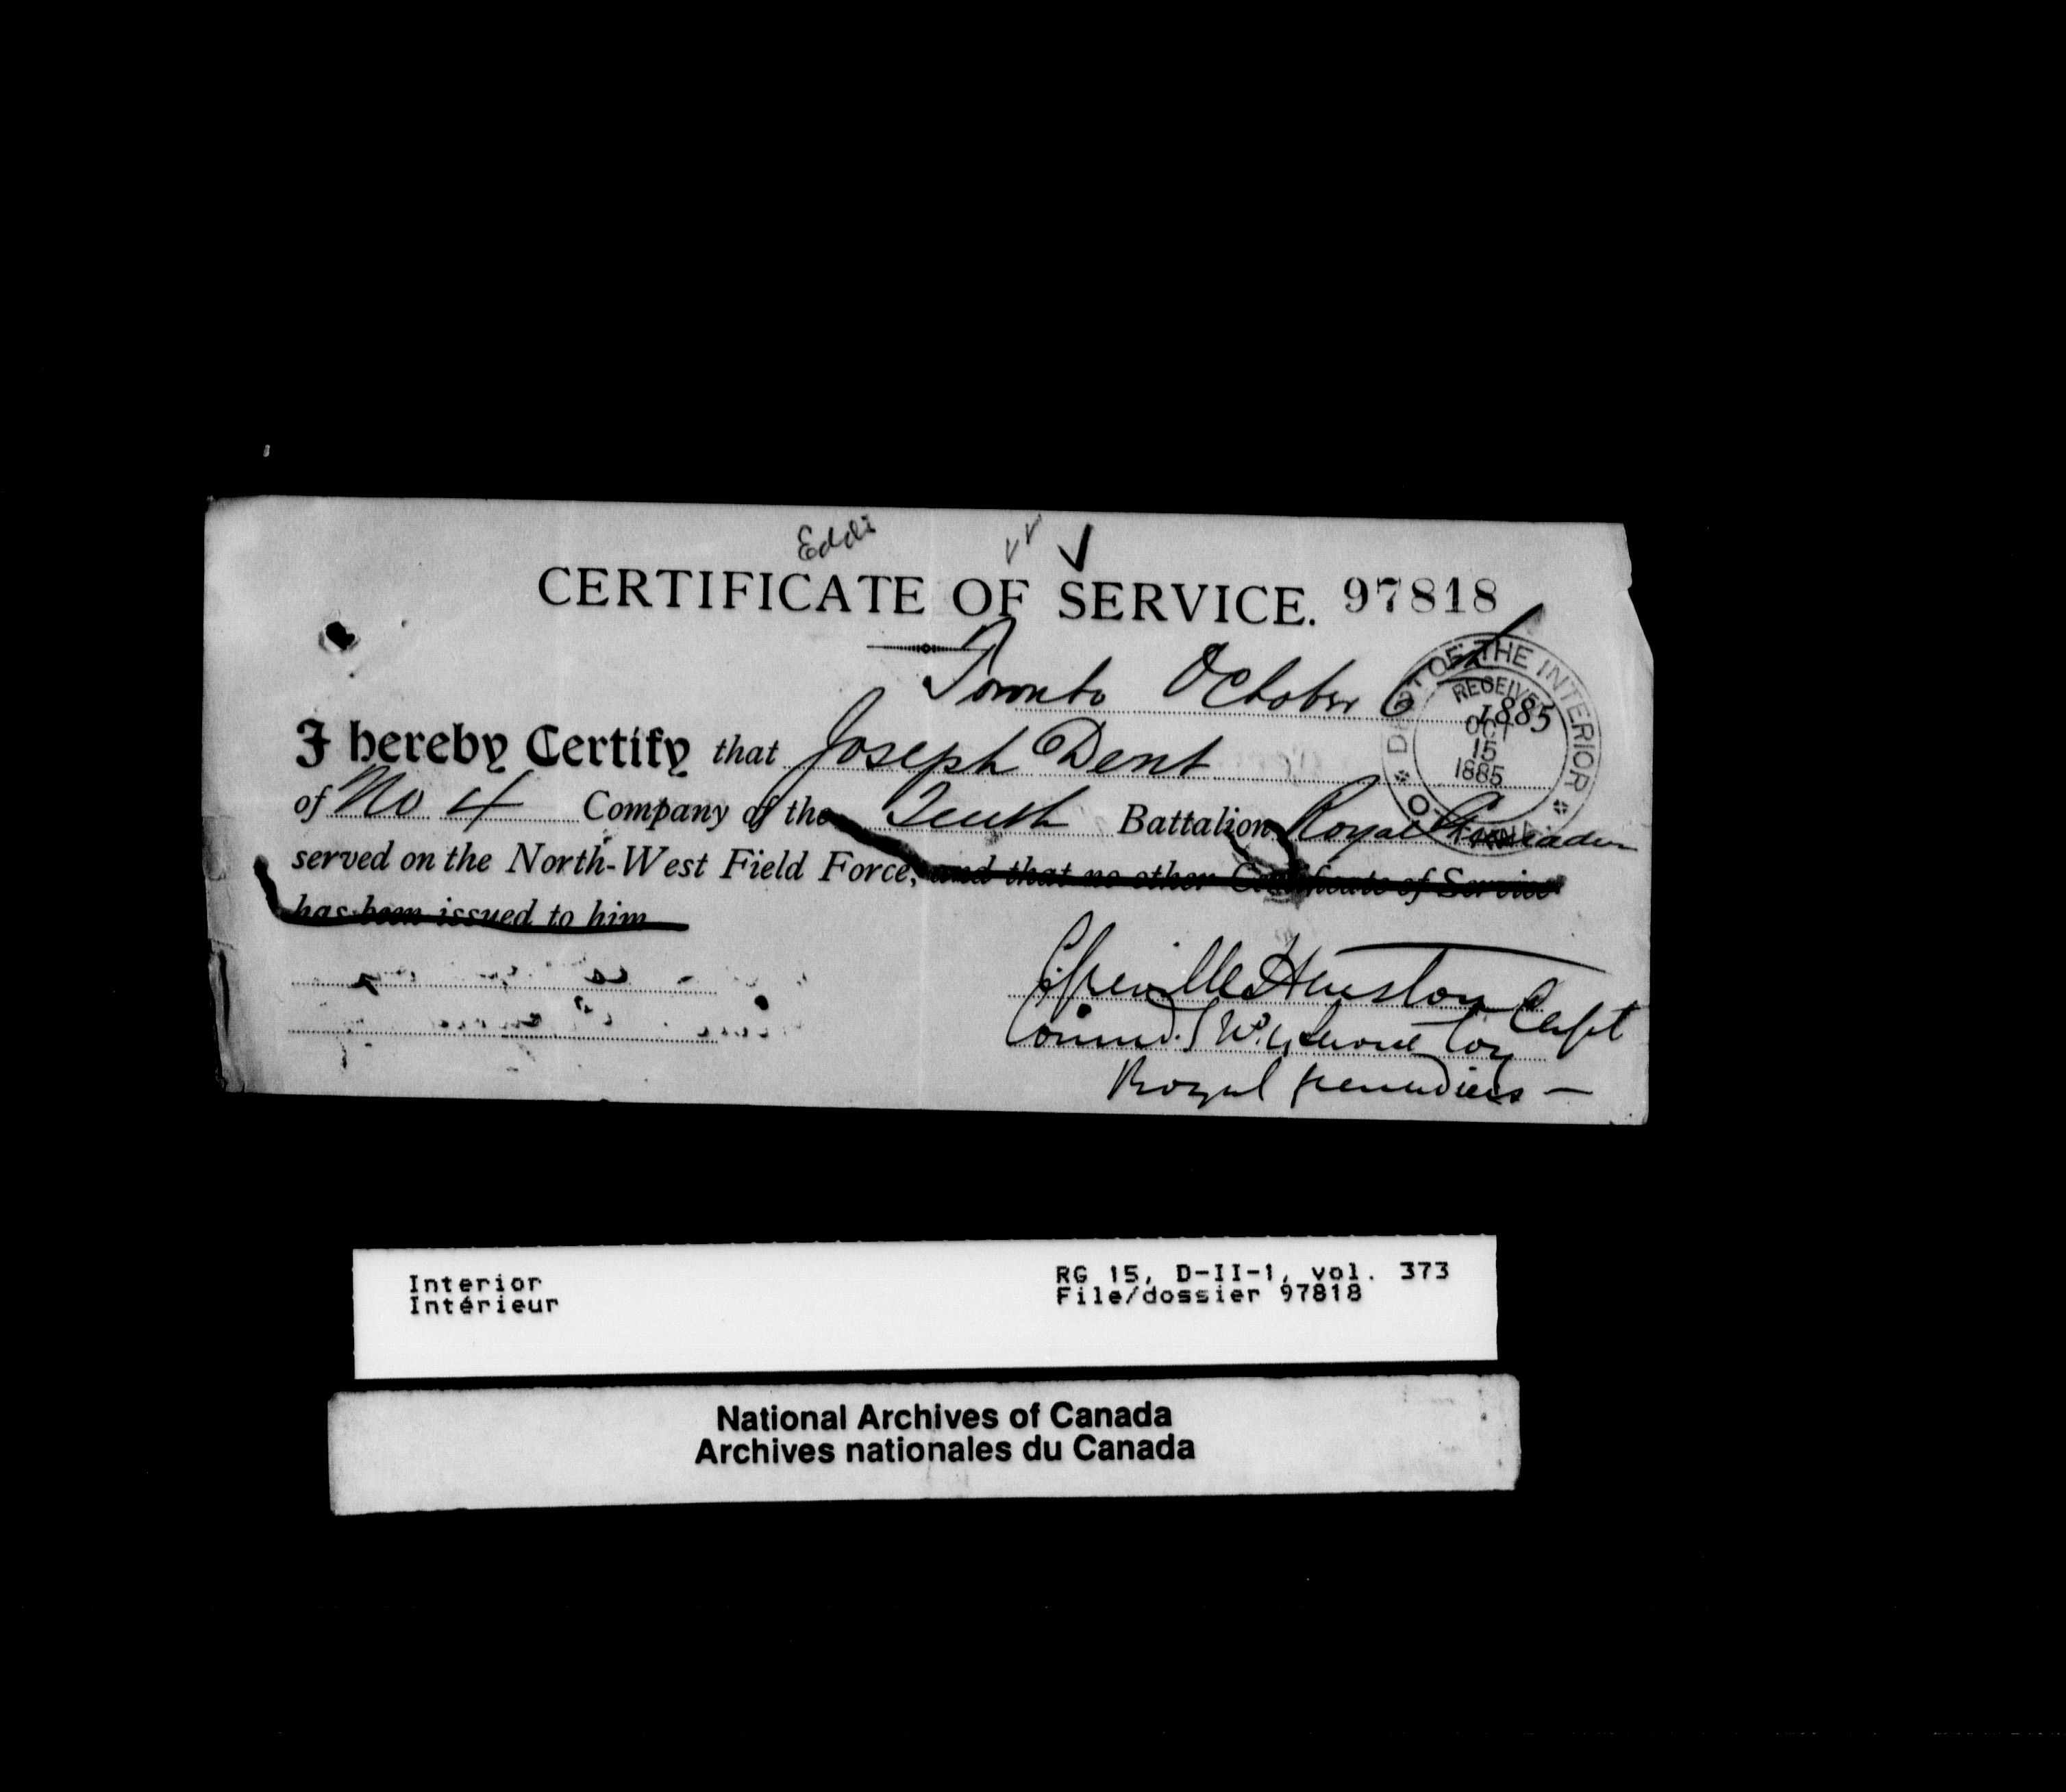 Eddi
CERTIFICATE OF SERVICE. 97818
Toronto October 6th 1885
I hereby Certify that Joseph Dent
of No 4 Company of the Tenth Battalion Royal Grenadiers
served on the North-West Field Force, and that no other Certificate of Service
has been issued to him
DEPT OF THE INTERIOR
RECEIVED
OCT
15
1885
OTTAWA
Greville Harston Capt
Comd. Service Coy
Royal Grenadiers —
Interior
Intérieur
RG 15, D-II-1, vol. 373
File/dossier 97818
National Archives of Canada
Archives nationales du Canada